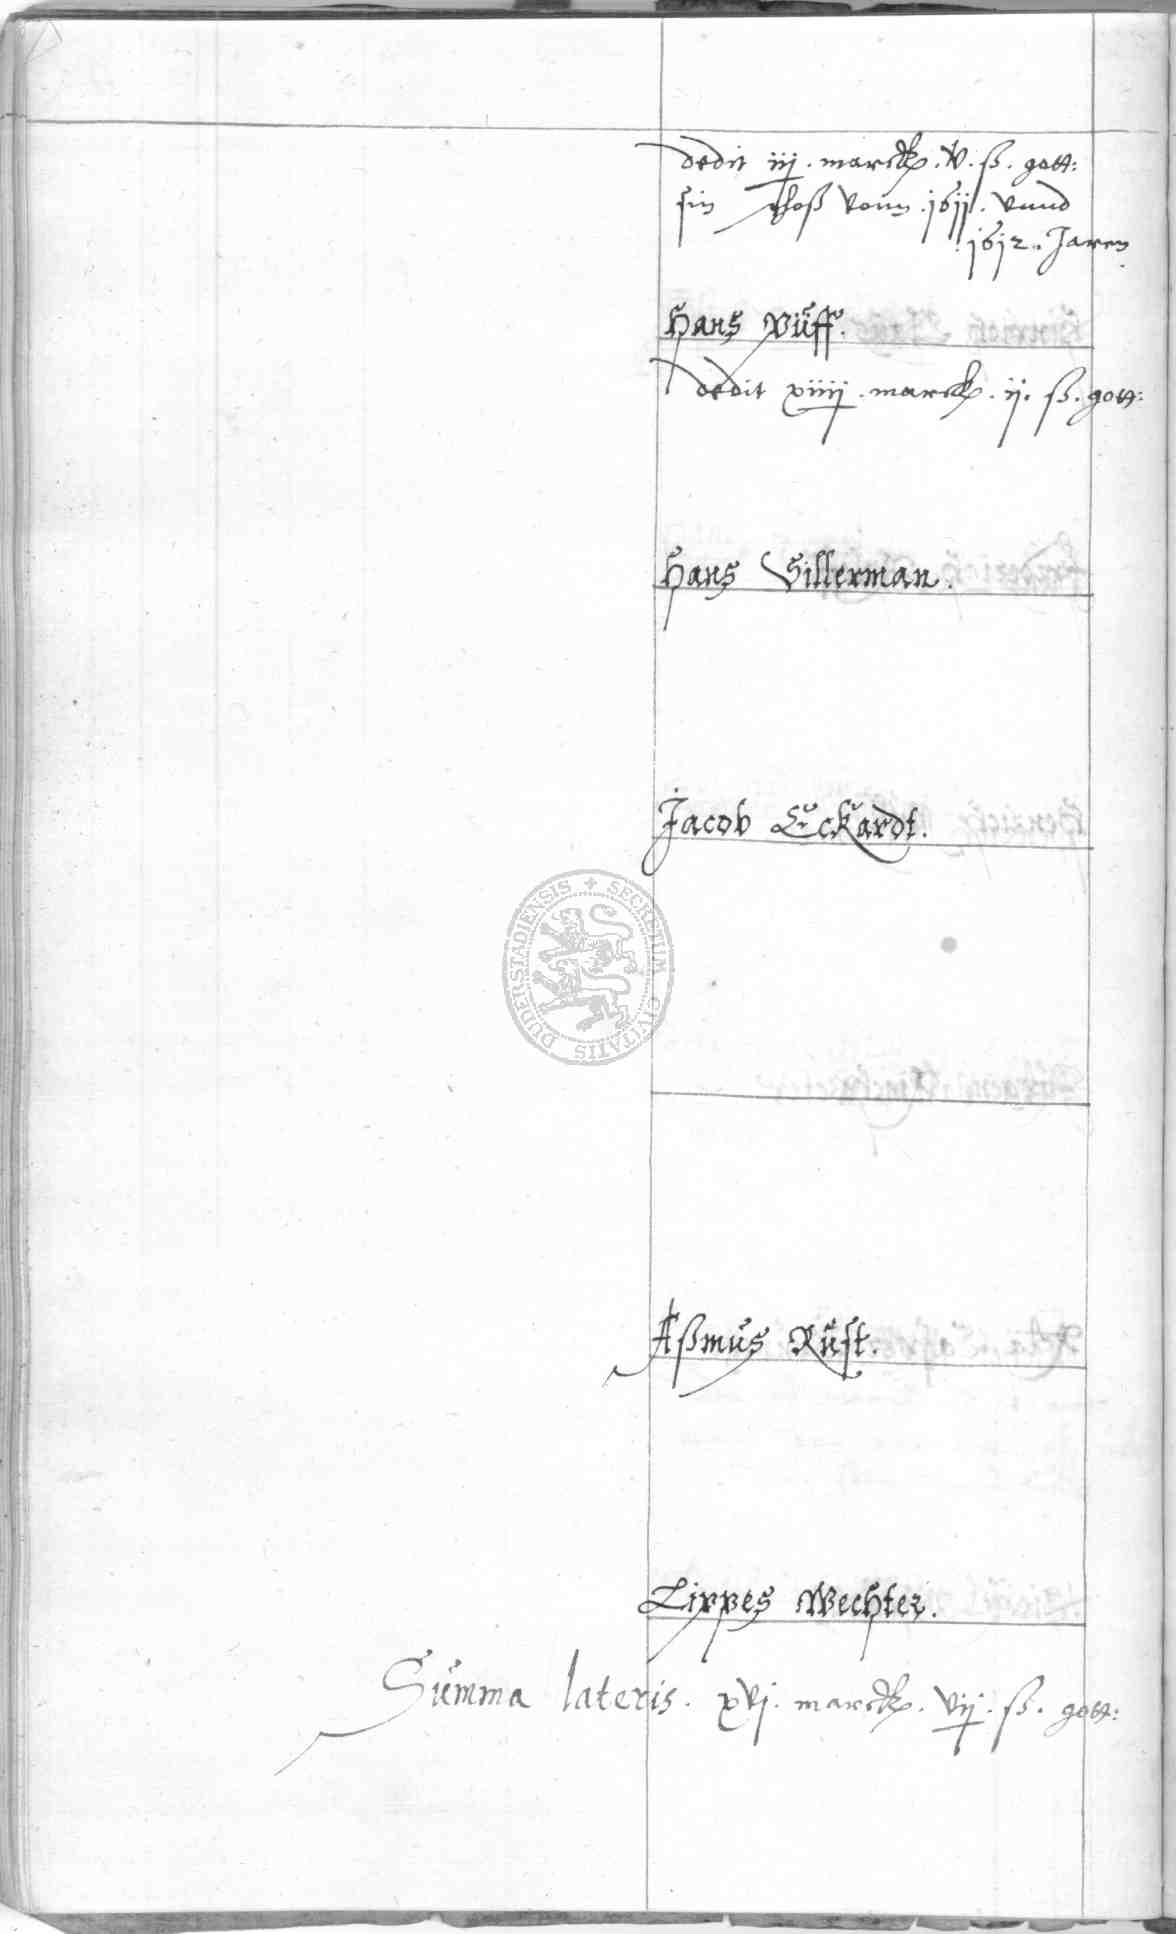 dedit iij . marck . v . ß . gott:
sin schoß vonn . 1611 . vnnd
1612 . Jaren
Hans Püff.
dedit xiiij . marck . ij . ß . gott:
Hans Sillerman.
Jacob Eckardt.
+ SECRETUM CIVITATIS DUDERSTADIENSIS
Aßmus Rüst.
Lippes Wechter.
Summa lateris . xvj . marck . vij . ß . gott: